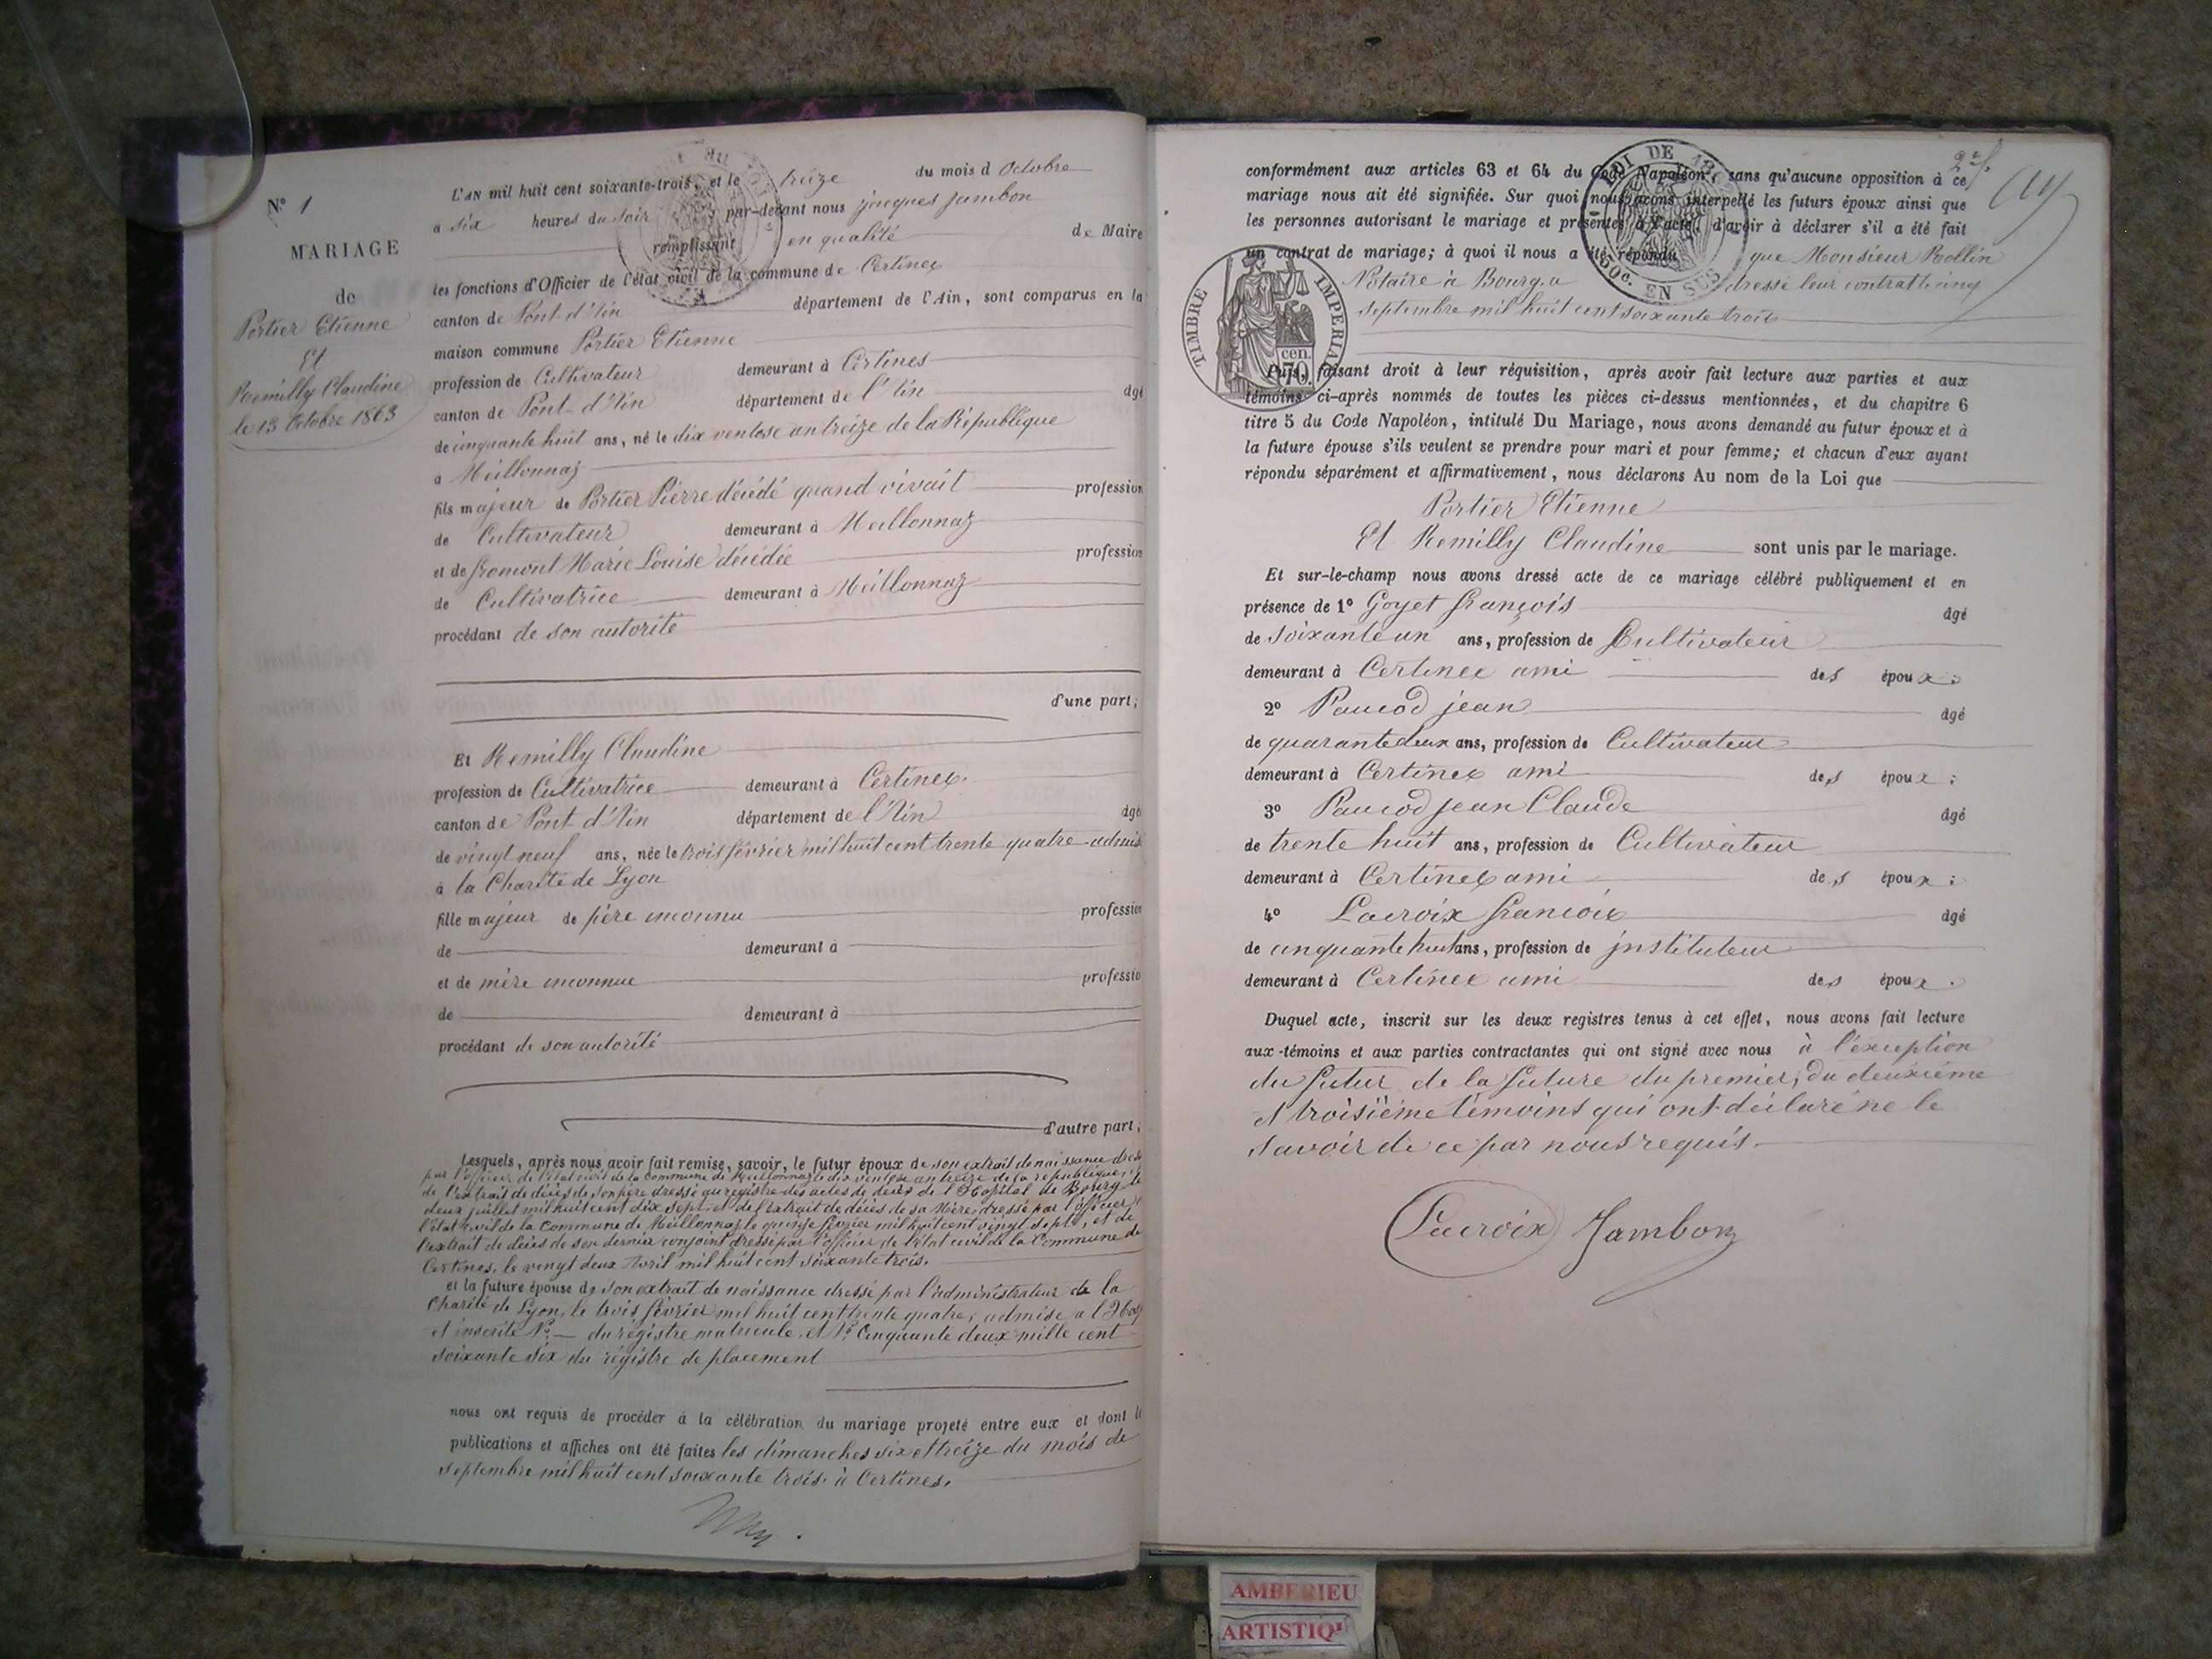 N° 1
MARIAGE
de
Portier Etienne
Et
Remilly Claudine
le 13 Octobre 1863
L'AN mil huit cent soixante-trois, et le treize du mois d Octobre
a six heures du soir par-devant nous jacques Jambon
remplissant en qualité de Maire
les fonctions d'Officier de l'état civil de la commune de Certines
canton de Pont-d'Ain département de l'Ain, sont comparus en la
maison commune Portier Etienne
profession de Cultivateur demeurant à Certines
canton de Pont-d'Ain département de l'Ain âgé
de cinquante huit ans, né le dix ventose an treize de la République
a Meillonnaz
fils majeur de Portier Pierre décédé quand vivait profession
de Cultivateur demeurant à Meillonnaz
et de fromont Marie Louise décédée profession
de Cultivatrice demeurant à Meillonnaz
procédant de son autorité
d'une part;
Et Remilly Claudine
profession de Cultivatrice demeurant à Certines.
canton de Pont d'Ain département de l'Ain âgé
de vingt neuf ans, née le trois février mil huit cent trente quatre admis
à la Charité de Lyon
fille majeur de père inconnu profession
de demeurant à
et de mère inconnue professio
de demeurant à
procédant de son autorité
d'autre part;
Lesquels, après nous avoir fait remise, savoir, le futur époux de son extrait de naissance dressé
par l'officier de l'état civil de la Commune de Meillonnaz le dix ventose an treize de la république,
de l'extrait de décès de son père dressé au registre des actes de décès de l'Hôpital de Bourg le
deux juillet mil huit cent dix sept, et de l'extrait de décès de sa Mère, dressé par l'officier
l'état civil de la Commune de Meillonnaz le quinze février mil huit cent vingt sept, et de
l'extrait de décès de son dernier conjoint dressé par l'officier de l'état civil de la Commune de
Certines, le vingt deux Avril mil huit cent soixante trois.
et la future épouse de son extrait de naissance dressé par l'administrateur de la
Charité de Lyon, le trois février mil huit cent trente quatre, admise a l'Hosp
et inscrite N° — du régistre matricule, et N° Cinquante deux mille cent
soixante six du régistre de placement
nous ont requis de procéder à la célébration du mariage projeté entre eux et dont le
publications et affiches ont été faites les dimanches six et treize du mois de
septembre mil huit cent soixante trois à Certines.
2e f.
conformément aux articles 63 et 64 du Code Napoléon, sans qu'aucune opposition à ce
mariage nous ait été signifiée. Sur quoi nous avons interpellé les futurs époux ainsi que
les personnes autorisant le mariage et présentes à l'acte, d'avoir à déclarer s'il a été fait
un contrat de mariage; à quoi il nous a été répondu que Monsieur Rollin
Notaire à Bourg, a dressé leur contrat le cinq
septembre mil huit cent soixante trois
TIMBRE IMPERIAL
cen.
70.
50c. EN SUS
LOI DE 18
Puis, faisant droit à leur réquisition, après avoir fait lecture aux parties et aux
témoins ci-après nommés de toutes les pièces ci-dessus mentionnées, et du chapitre 6
titre 5 du Code Napoléon, intitulé Du Mariage, nous avons demandé au futur époux et à
la future épouse s'ils veulent se prendre pour mari et pour femme; et chacun d'eux ayant
répondu séparément et affirmativement, nous déclarons Au nom de la Loi que
Portier Etienne
Et Remilly Claudine sont unis par le mariage.
Et sur-le-champ nous avons dressé acte de ce mariage célébré publiquement et en
présence de 1° Goyet françois âgé
de soixante un ans, profession de Cultivateur
demeurant à Certines ami des époux;
2° Paucod jean âgé
de quarante deux ans, profession de Cultivateur
demeurant à Certines ami des époux;
3° Paucod jean Claude âgé
de trente huit ans, profession de Cultivateur
demeurant à Certines ami des époux;
4° Lacroix francois âgé
de cinquante huit ans, profession de jnstituteur
demeurant à Certines ami des époux.
Duquel acte, inscrit sur les deux registres tenus à cet effet, nous avons fait lecture
aux-témoins et aux parties contractantes qui ont signé avec nous à l'exception
du futur de la future du premier, du deuxième
et troisième témoins qui ont déclaré ne le
savoir de ce par nous requis.
Lacroix Jambon
AMBERIEU
ARTISTIQ